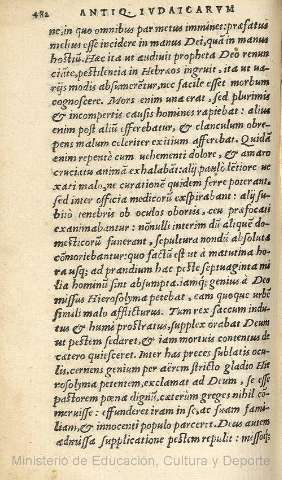 482 ANTIQ. IVDAICARVM
ne, in quo omnibus par metus immines: præfatus
melius esse incidere in manus Dei, quā in manus
hostiū. Hæc ita ut audiuit propheta Deo renun
ciāte, pestilentia in Hebræos ingruit, ita ut ua-
rijs modis absumeretur, nec facile esset morbum
cognoscere. Mors enim una erat, sed plurimis
& incompertis causis homines rapiebat: alius
enim post aliū efferebatur, & clanculum obre-
pens malum celeriter exitium afferebat. Quidā
enim repente cum uehementi dolore, & amaro
cruciatu animā exhalabāt: alij paulo lētiore ue
xati malo, ne curationē quidem ferre poterant,
sed inter officia medicorū exspirabant: alij su-
bitò tenebris ob oculos oboriis, ceu præfocati
exanimabantur: nōnulli interim dū aliquē do-
mesticorū funerant, sepultura nondū absoluta
cōmoriebantur: quo factū est ut à matutina ho-
ra usq; ad prandium hac peste septuaginta mi
lia hominū sint absumpta. iamq; genius à Deo
missus Hierosolyma petebat, eam quoque urbē
simili malo afflicturus. Tum rex saccum indu-
tus & humi prostratus, supplex orabat Deum
ut pestem sedaret, & iam mortuis contentus de
cætero quiesceret. Inter has preces sublatis ocu-
lis, cernens genium per aërem stricto gladio Hie
rosolyma petentem, exclamat ad Deum, se esse
pastorem pœna dignū, cæterùm greges nihil cō-
meruisse: effunderet iram in se, ac suam fami-
liam, & innocenti populo parceret. Deus autem
admissa supplicatione pestem repulit: missoq;
Ministerio de Educación, Cultura y Deporte